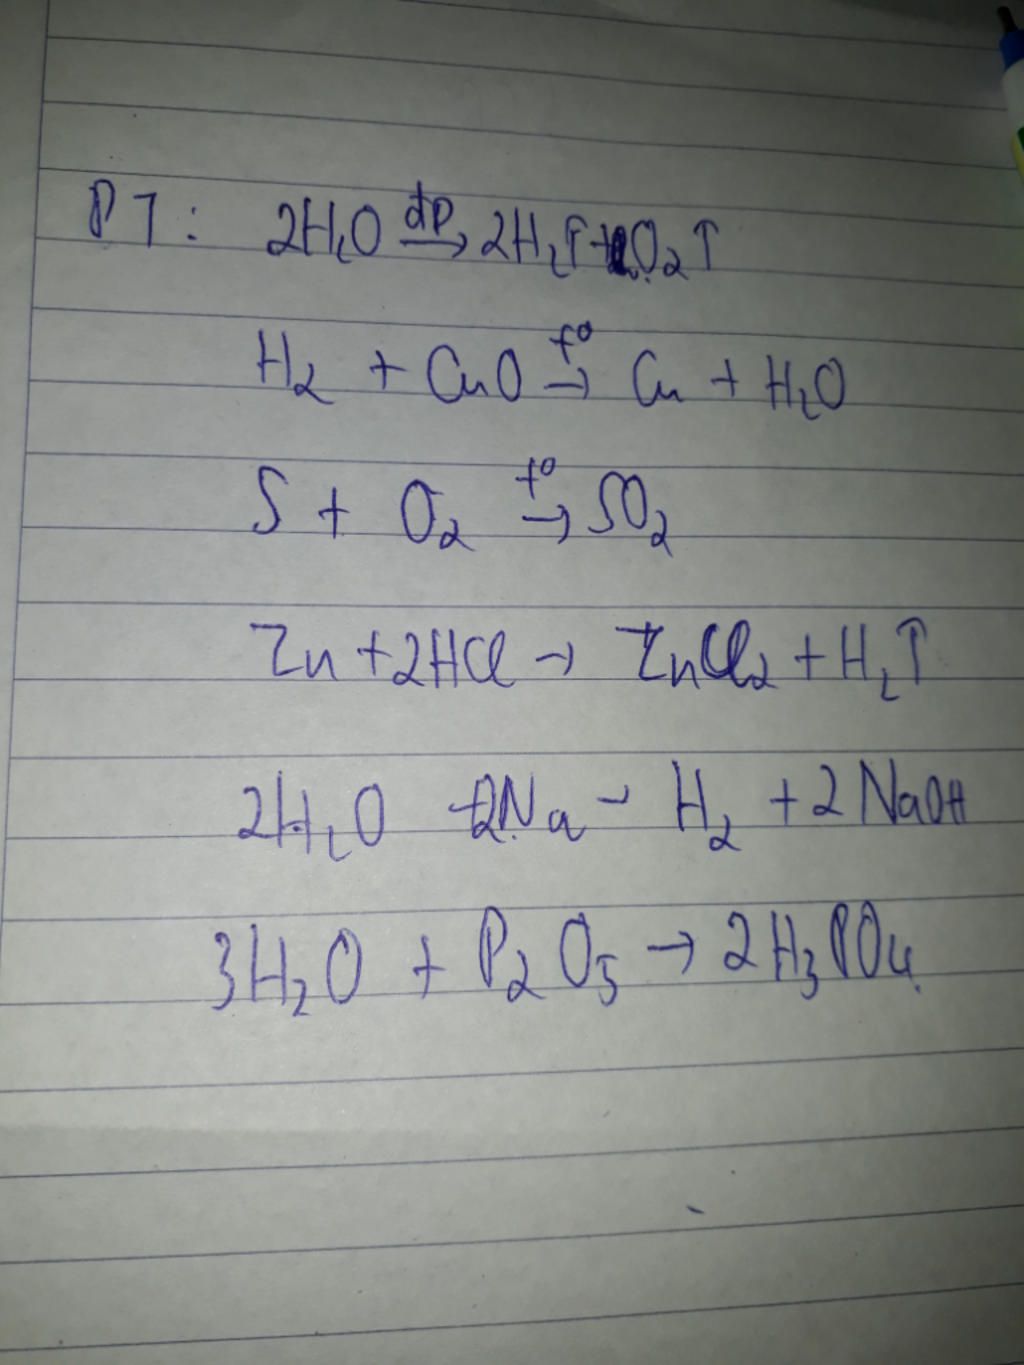 PT: 2H₂O \xrightarrow{đp} 2H₂↑ + O₂↑
H₂ + CuO \xrightarrow{t°} Cu + H₂O
S + O₂ \xrightarrow{t°} SO₂
Zn + 2HCl → ZnCl₂ + H₂↑
2H₂O + 2Na → H₂ + 2NaOH
3H₂O + P₂O₅ → 2H₃PO₄